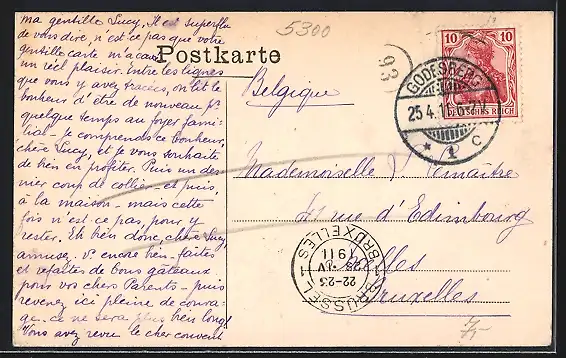 ma gentille Lucy, Il est superflu
de vous dire, n'est ce pas que votre
gentille carte m'a causé
un réel plaisir. Entre les lignes
que vous y avez tracées, on lit le
bonheur d'être de nouveau pr
quelque temps au foyer fami-
lial - je comprends ce bonheur,
chère Lucy, et je vous souhaite
de bien en profiter. Puis un der
nier coup de collier - et puis,
à la maison - mais cette
fois n'est ce pas, pour y
rester. Eh bien donc, chère Lucy,
amusez vs encore bien - faites
et refaites de bons gâteaux
pour vos chers Parents - puis
revenez ici pleine de coura-
ge. ce ne sera plus bien long!
Vous avez revu le cher couvent
Postkarte
5300
93
10 10
DEUTSCHES REICH
GODESBERG
25.4.11. 6-7 N.
* 1 c
Belgique
Mademoiselle Lemaître
41 rue d'Edimbourg
Ixelles
Bruxelles
BRUSSEL 1
22-23
25 IV
1911
1 BRUXELLES
7,-